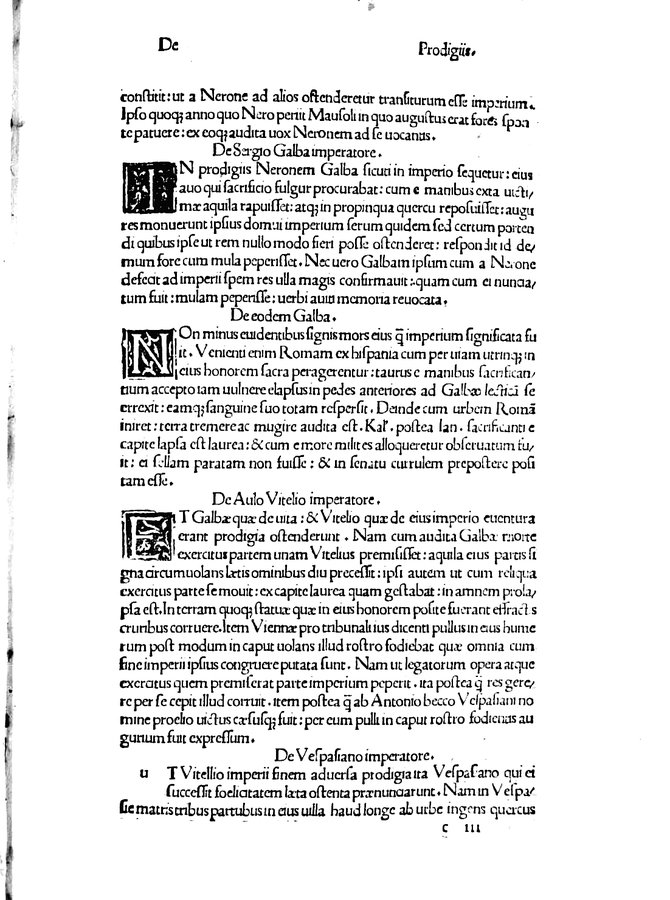 De Prodigiis.
constitit: ut a Nerone ad alios ostenderetur transiturum esse imperium.
Ipso quoq; anno quo Nero periit Mausoli in quo augustus erat fores spon
te patuere: ex eoq; audita uox Neronem ad se uocantis.
De Sergio Galba imperatore.
IN prodigiis Neronem Galba sicuti in imperio sequetur: eius
auo qui sacrificio fulgur procurabat: cum e manibus exta uicti/
mæ aquila rapuisset: atq; in propinqua quercu reposuisset: augu
res monuerunt ipsius domui imperium serum quidem sed certum porten
di quibus ipse ut rem nullo modo fieri posse ostenderet: respondit id de/
mum fore cum mula peperisset. Nec uero Galbam ipsum cum a Nerone
defecit ad imperii spem res ulla magis confirmauit: quam cum ei nuncia/
tum fuit: mulam peperisse: uerbi auiti memoria reuocata.
De eodem Galba.
NOn minus euidentibus signis mors eius q̄ imperium significata fu
it. Venienti enim Romam ex hispania cum per uiam utrinq; in
eius honorem sacra peragerentur: taurus e manibus sacrifican/
tium accepto iam uulnere elapsus in pedes anteriores ad Galbæ lecticā se
errexit: eamq; sanguine suo totam respersit. Deinde cum urbem Romā
iniret: terra tremere ac mugire audita est. Kal. postea Ian. sacrificanti e
capite lapsa est laurea: & cum e more milites alloqueretur obseruatum fu/
it: ei sellam paratam non fuisse: & in senatu currulem prepostere posi
tam esse.
De Aulo Vitelio imperatore.
ET Galbæ quæ de uita: & Vitelio quæ de eius imperio euentura
erant prodigia ostenderunt. Nam cum audita Galbæ morte
exercitus partem unam Vitelius premisisset: aquila eius partis si
gna circumuolans lætis ominibus diu precessit: ipsi autem ut cum reliqua
exercitus parte se mouit: ex capite laurea quam gestabat: in amnem prola/
psa est. In terram quoq; statuæ quæ in eius honorem posite fuerant effractis
cruribus corruere. Item Viennæ pro tribunali ius dicenti pullus in eius hume
rum post modum in caput uolans illud rostro fodiebat quæ omnia cum
fine imperii ipsius congruere putata sunt. Nam ut legatorum opera atque
exercitus quem premiserat parte imperium peperit. ita postea q̄ res gere/
re per se cepit illud corruit. item postea q̄ ab Antonio becco Vespasiani no
mine proelio uictus cæsusq; fuit: per eum pulli in caput rostro fodientis au
gurium fuit expressum.
De Vespasiano imperatore.
u T Vitellio imperii finem aduersa prodigia ita Vespasano qui ei
successit foelicitatem læta ostenta prænunciarunt. Nam in Vespa/
siæ matris tribus partubus in eius uilla haud longe ab urbe ingens quercus
c iii